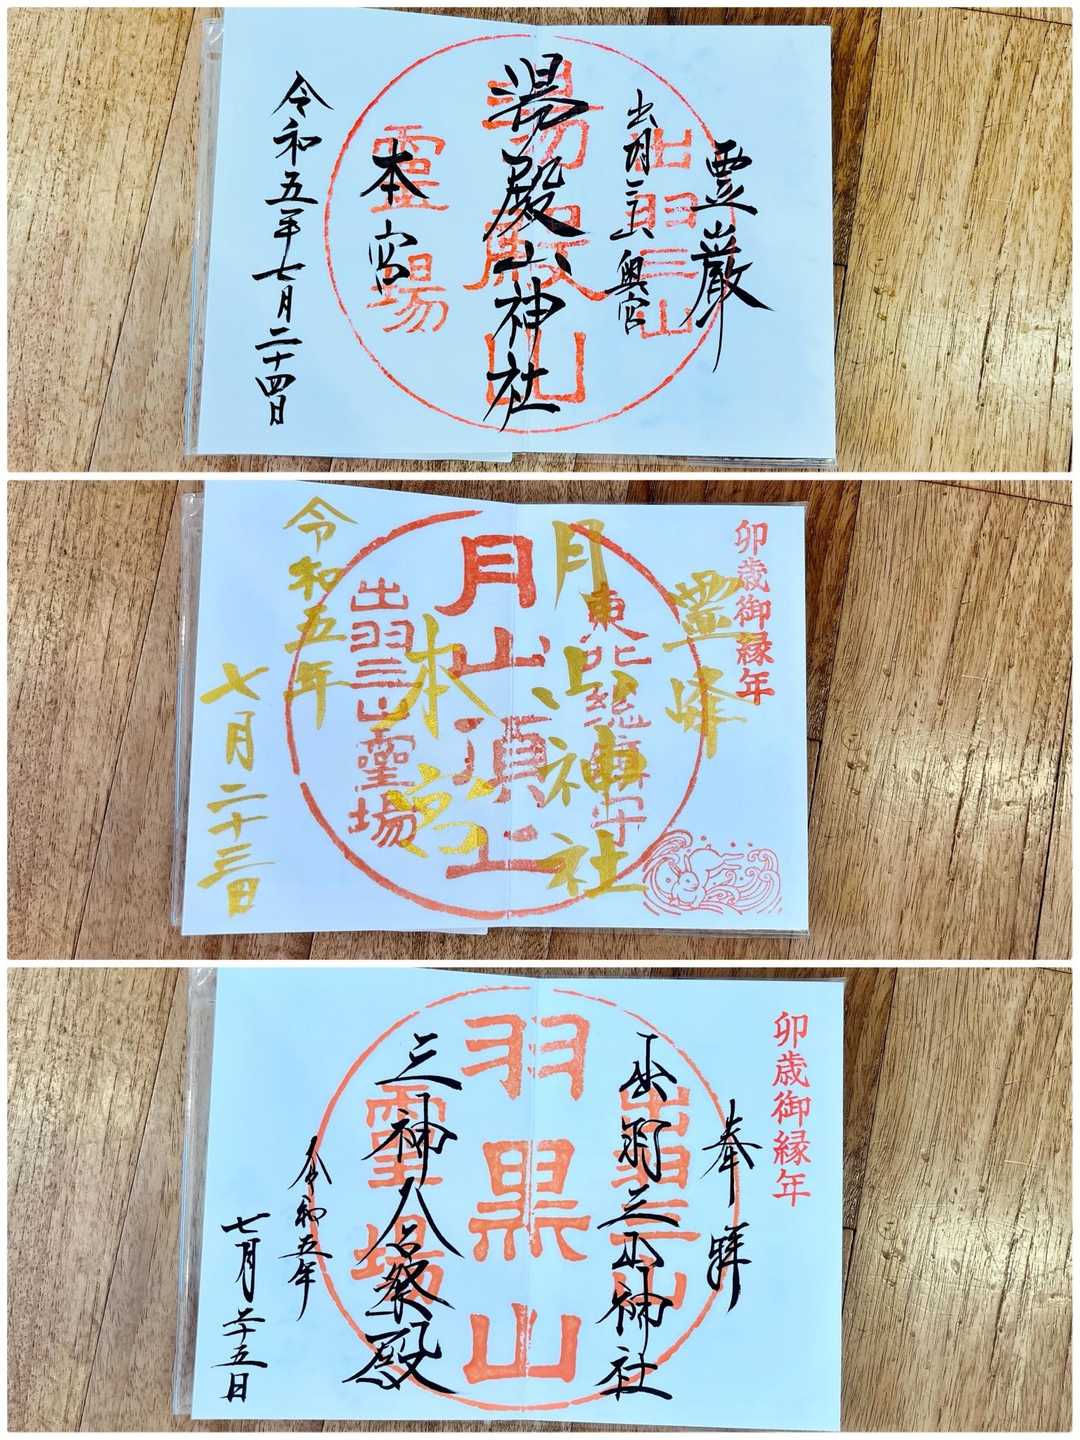 霊巌
出羽三山奥宮
湯殿山神社
本宮
令和五年七月二十四日
出羽三山
湯殿山
霊場
卯歳御縁年
霊峰
月山神社
本宮
令和五年
七月二十三日
東北総鎮守
月山頂上
出羽三山霊場
卯歳御縁年
奉拝
出羽三山神社
三神合祭殿
令和五年
七月二十五日
出羽三山
羽黒山
霊場